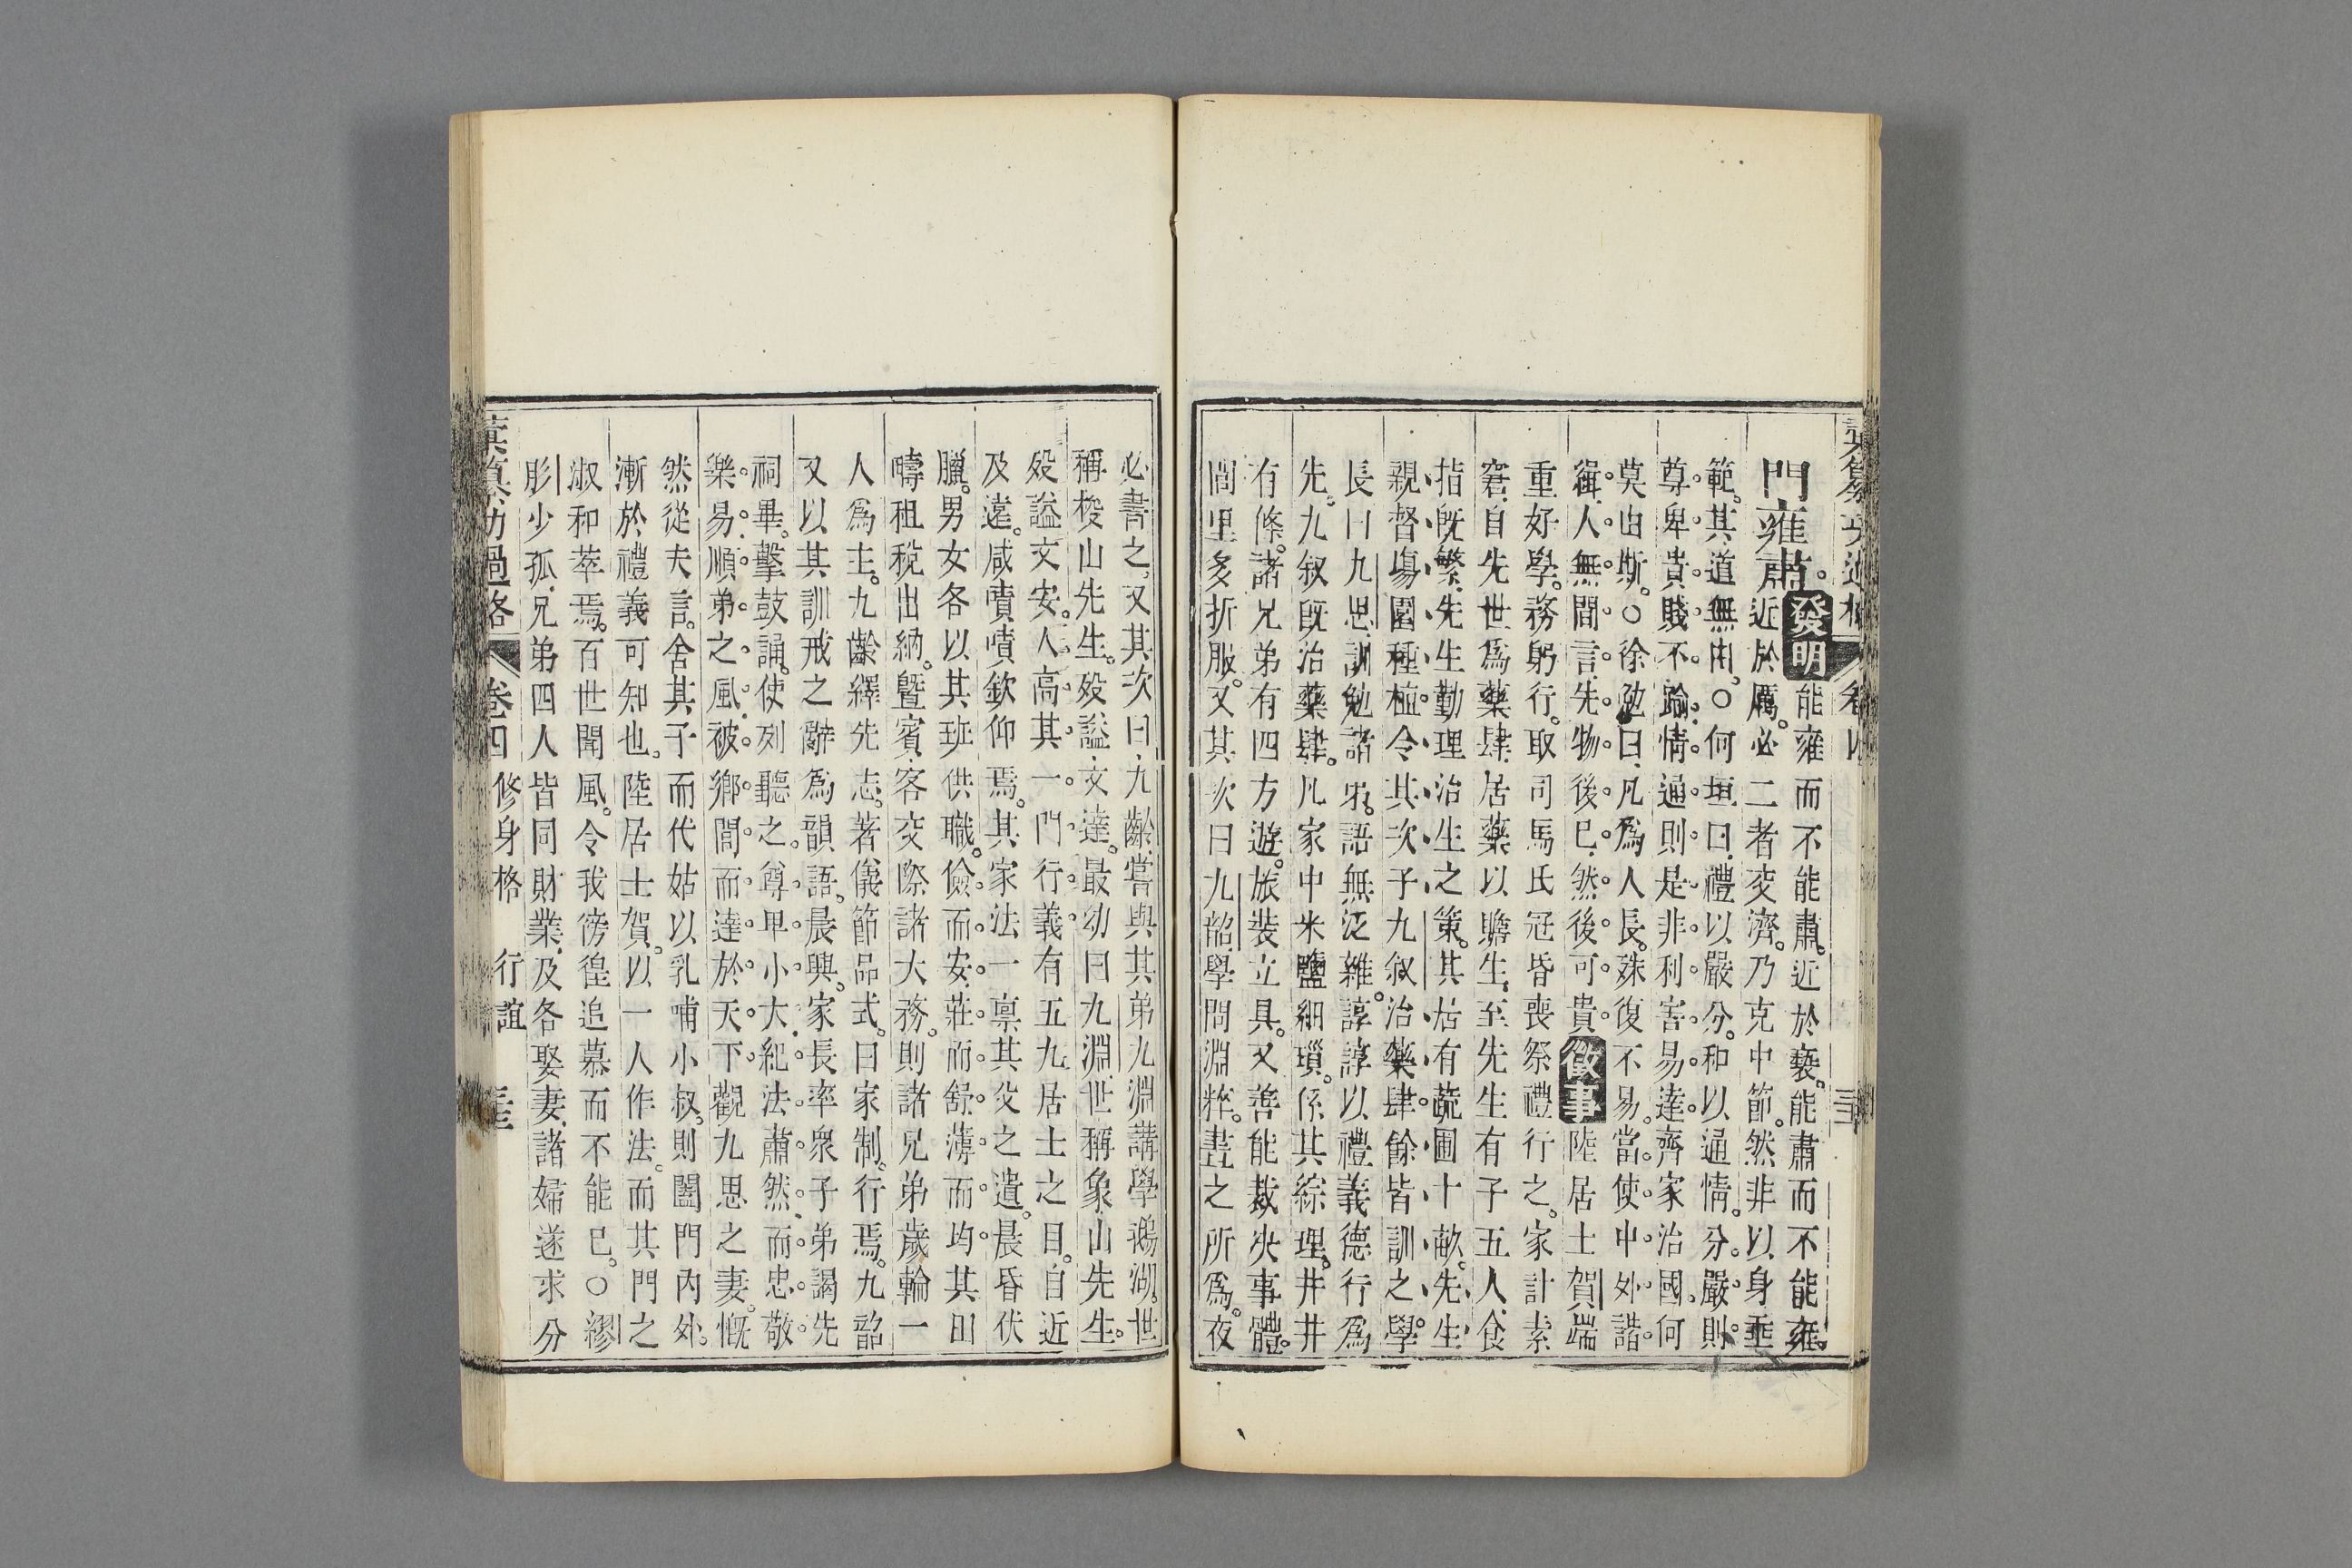 門雍肅。發明能雍而不能肅。近於褻。能肅而不能雍。
近於厲。必二者交濟。乃克中節。然非以身垂
範。其道無由。○何垣曰。禮以嚴分。和以通情。分嚴則
尊卑貴賤不踰。情通則是非利害易達。齊家治國。何
莫由斯。○徐勉曰。凡爲人長。殊復不易。當使中外諧
緝。人無間言。先物後已。然後可貴。徵事陸居士賀。端
重好學。務躬行。取司馬氏冠昏喪祭禮行之。家計素
窘。自先世爲藥肆。居藥以贍生。至先生有子五人。食
指既繁。先生勤理治生之策。其居有蔬圃十畝。先生
親督場圃種植。令其次子九叙治藥肆。餘皆訓之學。
長曰九思。訓勉諸弟。語無泛雜。諄諄以禮義德行爲
先。九叙既治藥肆。凡家中米鹽細瑣。係其綜理。井井
有條。諸兄弟有四方遊。旅裝立具。又善能裁決事體。
閭里多折服。又其次曰九韶。學問淵粹。晝之所爲。夜
必書之。又其次曰九齡。嘗與其弟九淵講學鵝湖。世
稱梭山先生。殁謚文達。最幼曰九淵。世稱象山先生。
殁謚文安。人高其一門行義。有五九居士之目。自近
及遠。咸嘖嘖欽仰焉。其家法一禀其父之遺。晨昏伏
臘。男女各以其班供職。儉而安。莊而舒。薄而均。其田
疇租稅出納。曁賓客交際諸大務。則諸兄弟歲輪一
人爲主。九齡繹先志。著儀節品式。曰家制。行焉。九韶
又以其訓戒之辭爲韻語。晨興。家長率衆子弟謁先
祠畢。擊鼓誦。使列聽之。尊卑小大。紀法肅然。而忠敬
樂易。順弟之風。被鄉閭而達於天下。觀九思之妻。慨
然從夫言。舍其子而代姑以乳哺小叔。則閨門內外。
漸於禮義可知也。陸居士賀。以一人作法。而其門之
淑和萃焉。百世聞風。令我徬徨追慕而不能已。○繆
肜少孤。兄弟四人。皆同財業。及各娶妻。諸婦遂求分
彙纂功過格 卷四 修身格 行誼